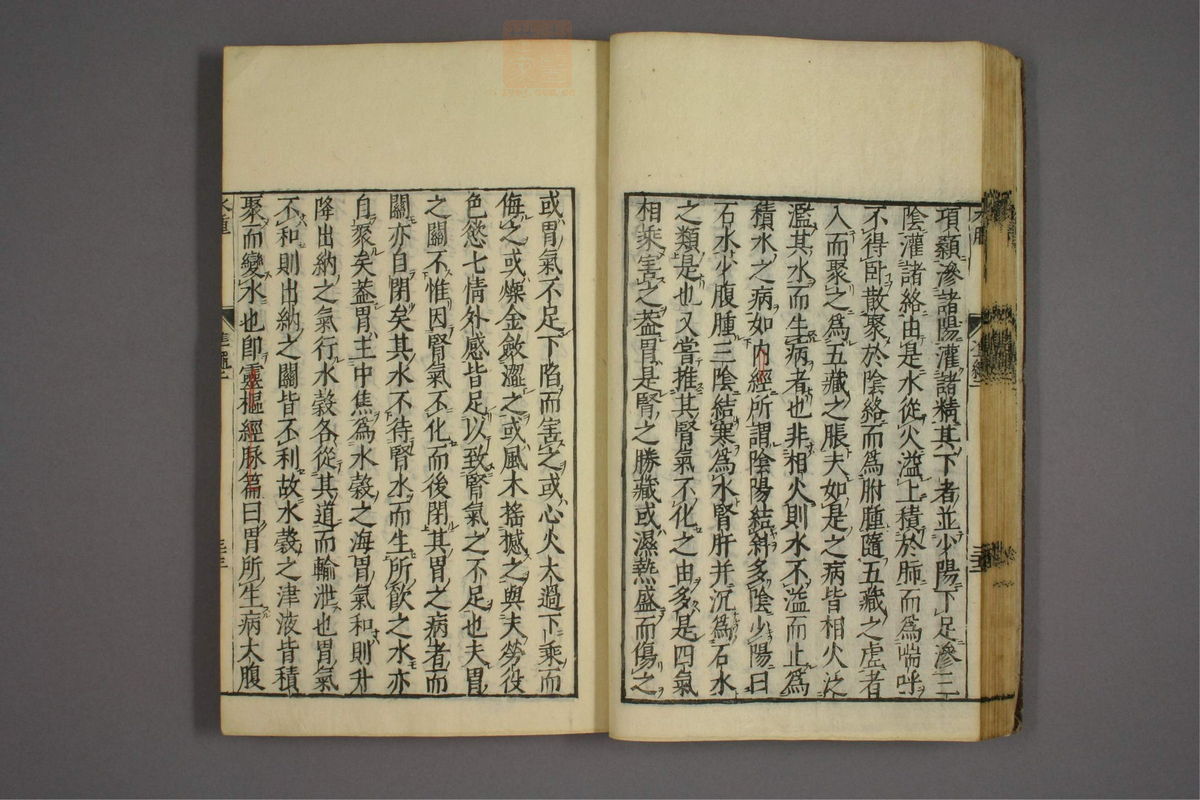 項顙滲諸陽灌諸精其下者並少陽下足滲三
陰灌諸絡由是水從火溢上積於肺而爲喘呼
不得卧散聚於陰絡而爲胕腫隨五藏之虛者
入而聚之爲五藏之脹夫如是之病皆相火泛
濫其水而生病者也非相火則水不溢而止爲
積水之病如内經所謂陰陽結斜多陰少陽曰
石水少腹腫三陰結寒爲水腎肝并沉爲石水
之類是也又當推其腎氣不化之由多是四氣
相乘害之葢胃是腎之勝藏或濕熱盛而傷之
或胃氣不足下陷而害之或心火太過下乘而
侮之或燥金斂澀之或風木搖撼之與夫勞役
色慾七情外感皆足以致腎氣之不足也夫胃
之關不惟因腎氣不化而後閉其胃之病者而
關亦自閉矣其水不待腎水而生所飲之水亦
自聚矣葢胃主中焦爲水穀之海胃氣和則升
降出納之氣行水穀各從其道而輸泄也胃氣
不和則出納之關皆不利故水穀之津液皆積
聚而變水也卽靈樞經脉篇曰胃所生病大腹
水腫